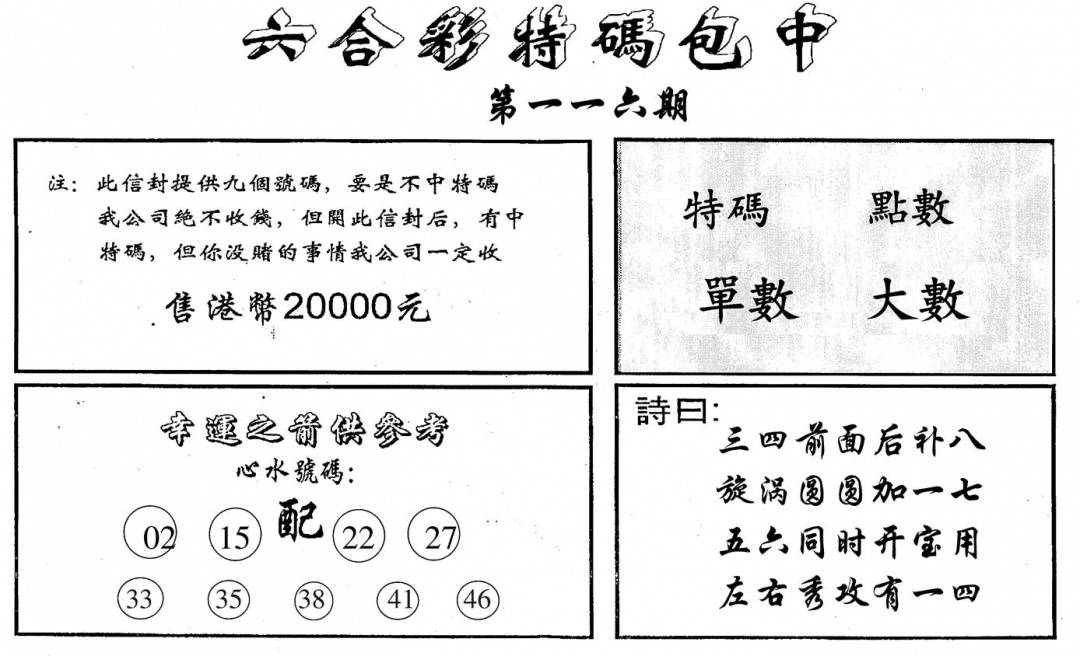 六合彩特碼包中
第一一六期
注：此信封提供九個號碼，要是不中特碼
我公司絕不收錢，但開此信封后，有中
特碼，但你没賭的事情我公司一定收
售港幣20000元
特碼 點數
單數 大數
幸運之箭供參考
心水號碼：
02 15 配 22 27
33 35 38 41 46
詩曰：
三四前面后补八
旋涡圆圆加一七
五六同时开宝用
左右秀攻有一四